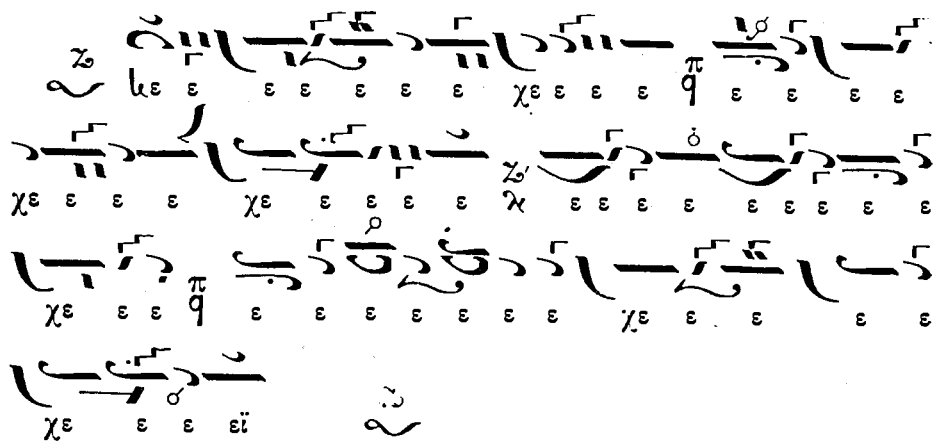 ε ε ε ε ε ε χε ε ε ε π q ε ε ε ε
χε ε ε ε χε ε ε ε ε ε ε ε ε ε ε ε ε ε
χε ε ε π q ε ε ε ε ε ε ε χε ε ε ε ε
χε ε ε εϊ